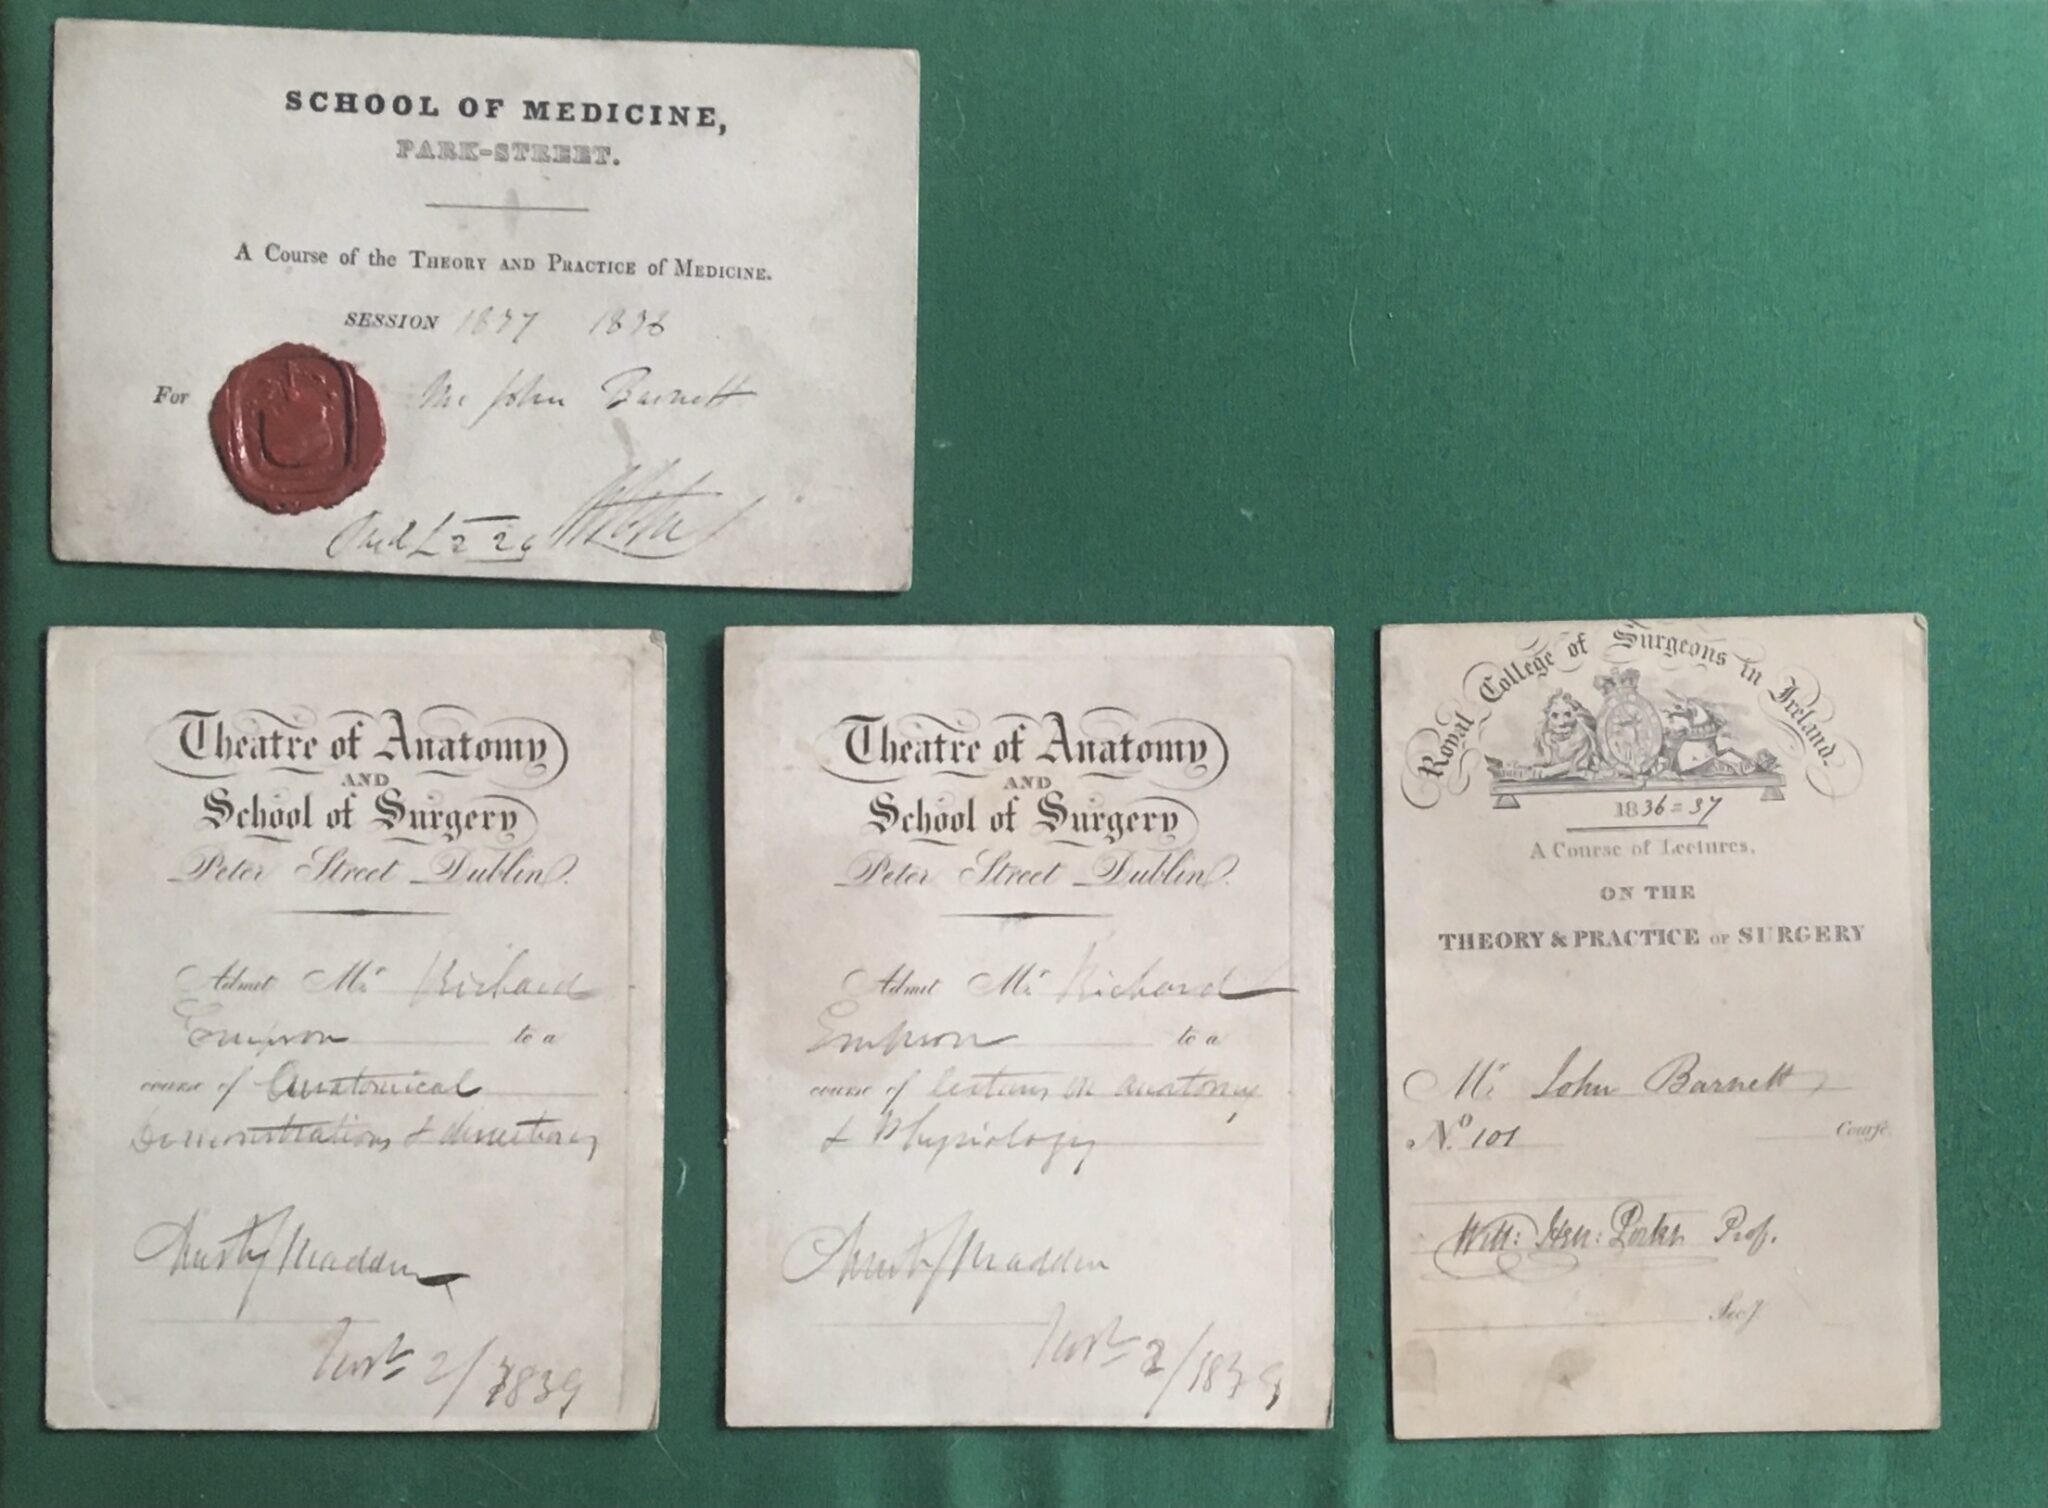 SCHOOL OF MEDICINE,
PARK-STREET.
A Course of the THEORY AND PRACTICE of MEDICINE.
SESSION 1837 1838
For Mr John Barnett
Paid £2 2
Theatre of Anatomy
AND
School of Surgery
Peter Street Dublin.
Admit Mr. Richard
Empson to a
course of Anatomical
Demonstrations & dissections
Christr Madden
Novr 2/1839
Theatre of Anatomy
AND
School of Surgery
Peter Street Dublin.
Admit Mr. Richard
Empson to a
course of lectures on anatomy
& Physiology
Christr Madden
Novr 2/1839
Royal College of Surgeons in Ireland.
1836=37
A Course of Lectures,
ON THE
THEORY & PRACTICE OF SURGERY
Mr. John Barnett
No. 101 Course
Will: Hen: Porter Prof.
Secy